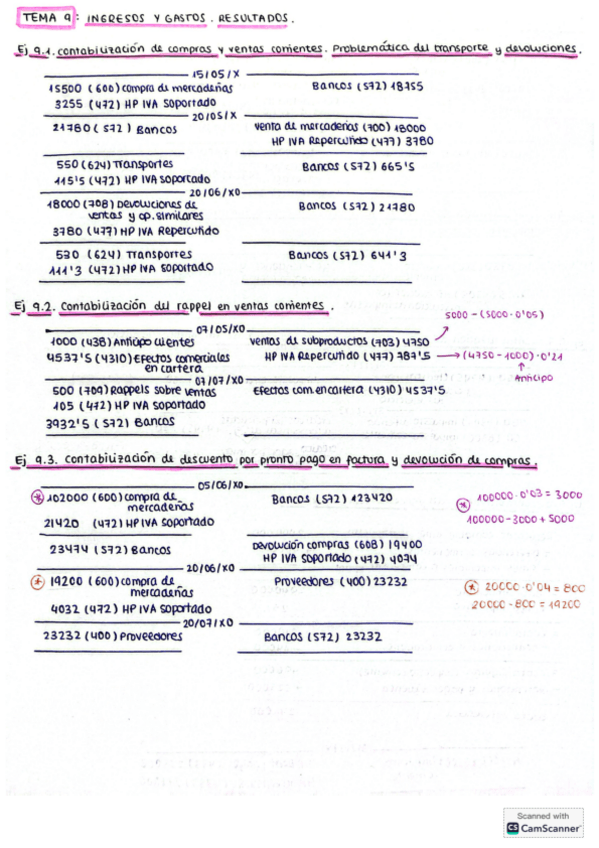 TEMA 9: INGRESOS Y GASTOS. RESULTADOS.
Ej 9.1. contabilización de compras y ventas corrientes. Problemática del transporte y devoluciones.
15/05/X
15500 (600) compra de mercaderías Bancos (572) 18755
3255 (472) HP IVA soportado
20/05/X
21780 (572) Bancos venta de mercaderías (700) 18000
HP IVA Repercutido (477) 3780
550 (624) Transportes Bancos (572) 665'5
115'5 (472) HP IVA soportado
20/06/X0
18000 (708) Devoluciones de Bancos (572) 21780
ventas y op. similares
3780 (477) HP IVA Repercutido
530 (624) Transportes Bancos (572) 641'3
111'3 (472) HP IVA soportado
Ej 9.2. Contabilización del rappel en ventas corrientes.
5000 - (5000·0'05)
07/05/X0
1000 (438) Anticipo clientes ventas de subproductos (703) 4750
4537'5 (4310) Efectos comerciales HP IVA Repercutido (477) 787'5 → (4750 - 1000)·0'21
en cartera
Anticipo
07/07/X0
500 (709) Rappels sobre ventas Efectos com. en cartera (4310) 4537'5
105 (472) HP IVA soportado
3932'5 (572) Bancos
Ej 9.3. Contabilización de descuento por pronto pago en factura y devolución de compras.
05/06/X0
* 102000 (600) compra de Bancos (572) 123420 * 100000·0'03 = 3000
mercaderías
21420 (472) HP IVA soportado 100000-3000+5000
23474 (572) Bancos Devolución compras (608) 19400
HP IVA soportado (472) 4074
20/06/X0
* 19200 (600) compra de Proveedores (400) 23232 * 20000·0'04 = 800
mercaderías 20000 - 800 = 19200
4032 (472) HP IVA soportado
20/07/X0
23232 (400) Proveedores Bancos (572) 23232
Scanned with
CS CamScanner